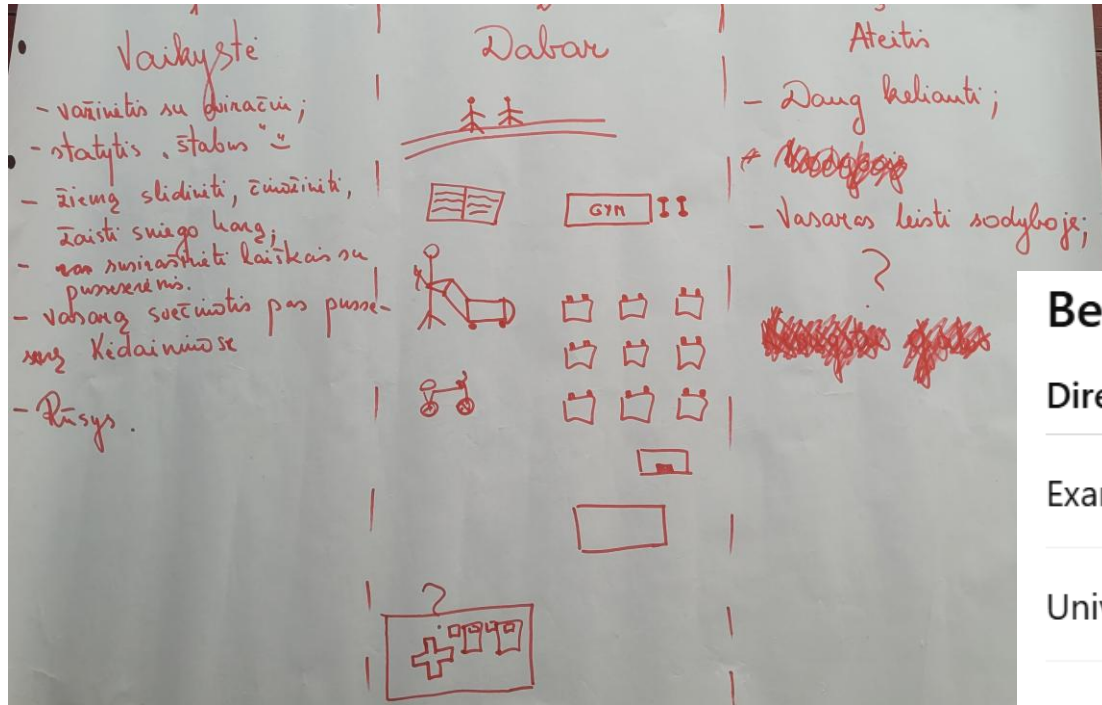 Vaikystė
- važinėtis su dviračiu;
- statytis „štabus"
- žiemą slidinėti, čiuožinėti,
žaisti sniego karą;
- susirašinėti laiškais su
pusseserėmis.
- vasarą svečiuotis pas pusse-
serę Kėdainiuose
- Rūsys.
Dabar
GYM
?
Ateitis
- Daug keliauti;
- Vasaras leisti sodyboje;
?
Be
Dire
Exar
Univ